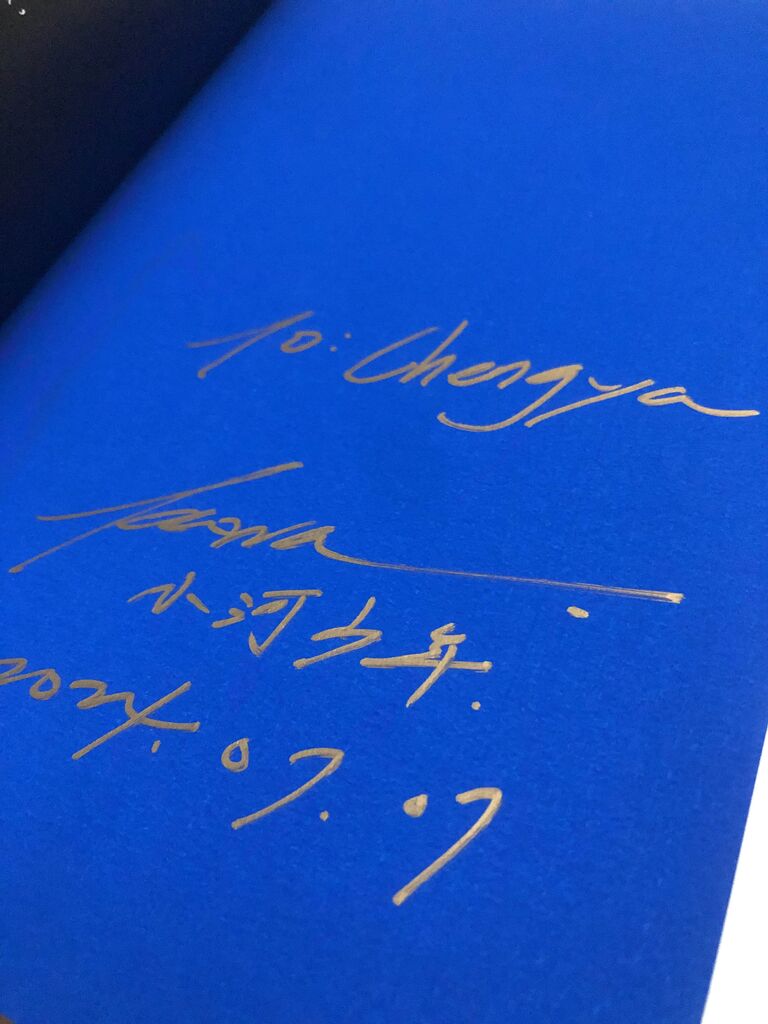 To: Chengya
小河少年.
2024.07.07